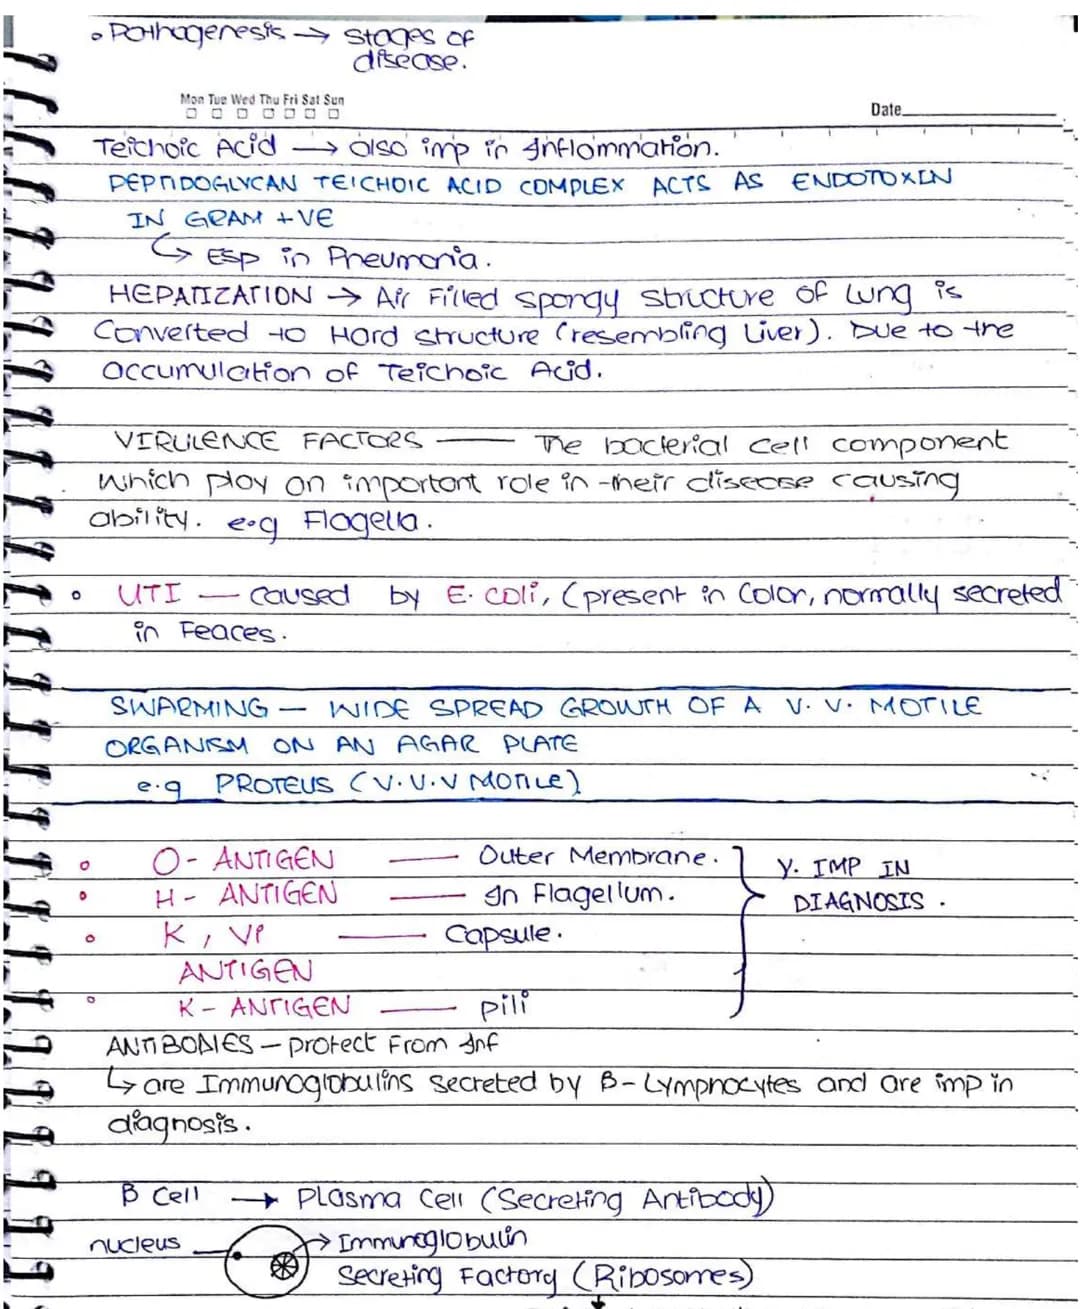 • Pathogenesis → Stages of
disease.
Mon Tue Wed Thu Fri Sat Sun
Date
Teichoic Acid → also imp in Inflammation.
PEPTIDOGLYCAN TEICHOIC ACID COMPLEX ACTS AS ENDOTOXIN
IN GRAM +VE
↳ Esp in Pneumonia.
HEPATIZATION → Air Filled spongy structure of lung is
Converted to Hard structure (resembling Liver). Due to the
accumulation of Teichoic Acid.
VIRULENCE FACTORS — The bacterial cell component
which play an important role in their disease causing
ability. e.g Flagella.
• UTI — caused by E. coli, (present in Colon, normally secreted
in Feaces.
SWARMING — WIDE SPREAD GROWTH OF A V. V. MOTILE
ORGANISM ON AN AGAR PLATE
e.g PROTEUS (V.V.V MOTILE)
• O- ANTIGEN — Outer Membrane.
• H- ANTIGEN — In Flagellum.
• K, VP — Capsule.
ANTIGEN
• K- ANTIGEN — pili
V. IMP IN
DIAGNOSIS.
ANTIBODIES — protect From Inf
↳ are Immunoglobulins secreted by B-Lymphocytes and are imp in
diagnosis.
B Cell → Plasma Cell (Secreting Antibody)
nucleus → Immunoglobulin
Secreting Factory (Ribosomes)